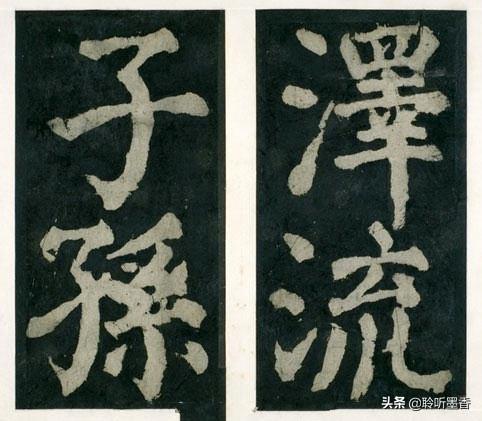 澤流
子孫
头条 @聆听墨香